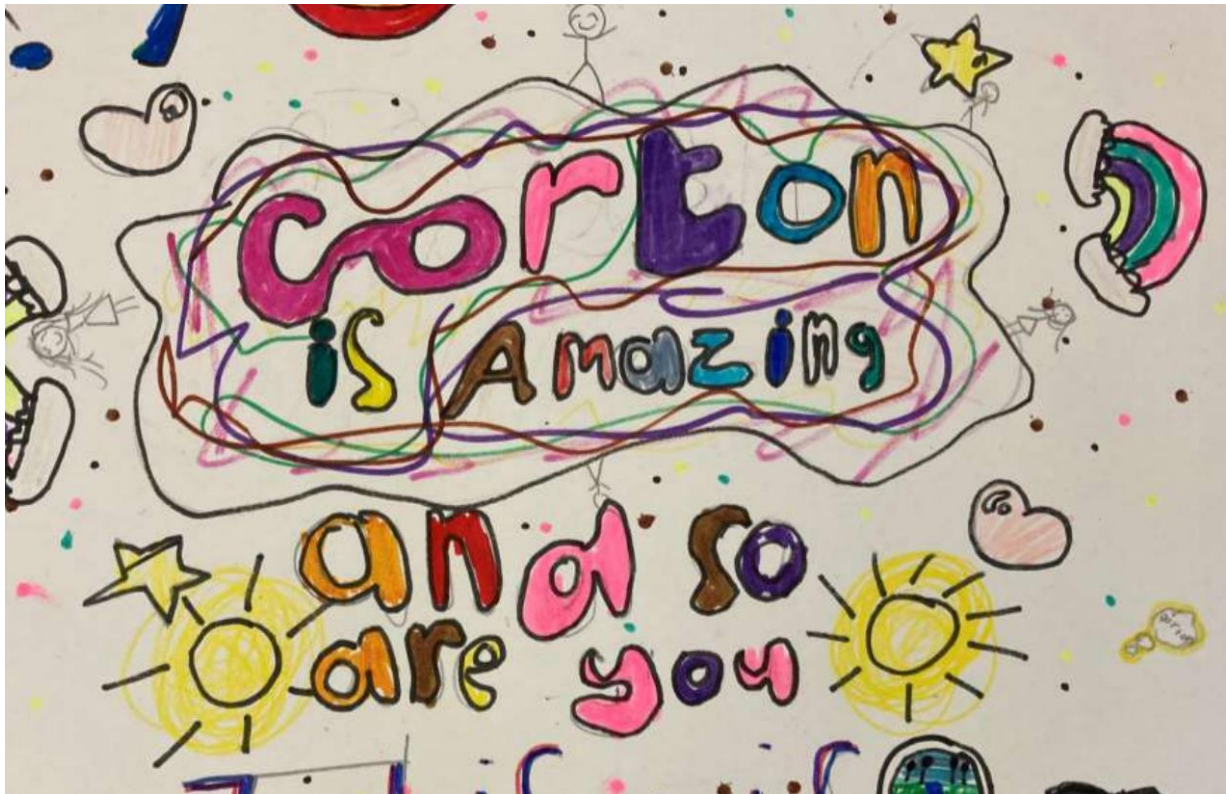 corton
is Amazing
and so
are you